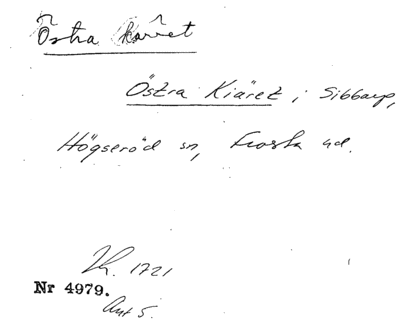 Östra kärret
Östra Kiäret i Sibbarp,
Högseröd sn, Frosta hd.
Lk. 1721
Nr 4979.
Akt 5.